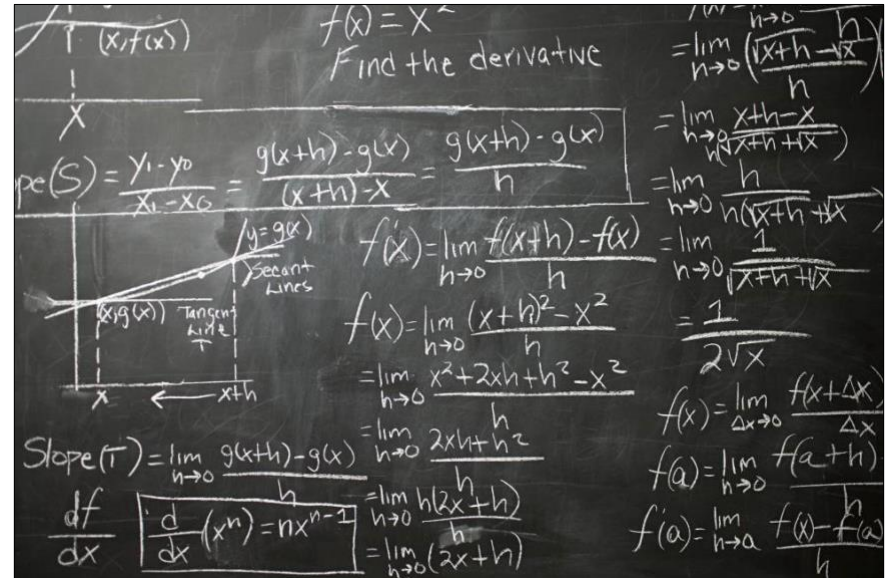 (x, f(x))
X
f(x) = x²
Find the derivative
pe(S) = y₁-y₀/x₁-x₀ = g(x+h)-g(x)/(x+h)-x = g(x+h)-g(x)/h
y=g(x)
Secant
Lines
(x,g(x))
Tangent
Line
T
x ← x+h
Slope(T) = lim h→0 g(x+h)-g(x)/h
df/dx
d/dx (xⁿ) = nxⁿ⁻¹
f(x) = lim h→0 f(x+h)-f(x)/h
f(x) = lim h→0 (x+h)²-x²/h
= lim h→0 x²+2xh+h²-x²/h
= lim h→0 2xh+h²/h
= lim h→0 h(2x+h)/h
= lim h→0 (2x+h)
h→0 h
= lim h→0 (√x+h-√x/h)(
= lim h→0 x+h-x/h(√x+h+√x)
= lim h→0 h/h(√x+h+√x
= lim h→0 1/√x+h+√x
= 1/2√x
f(x) = lim Δx→0 f(x+Δx)/Δx
f(a) = lim h→0 f(a+h)-/h
f'(a) = lim h→a f(x)-f(a)/h